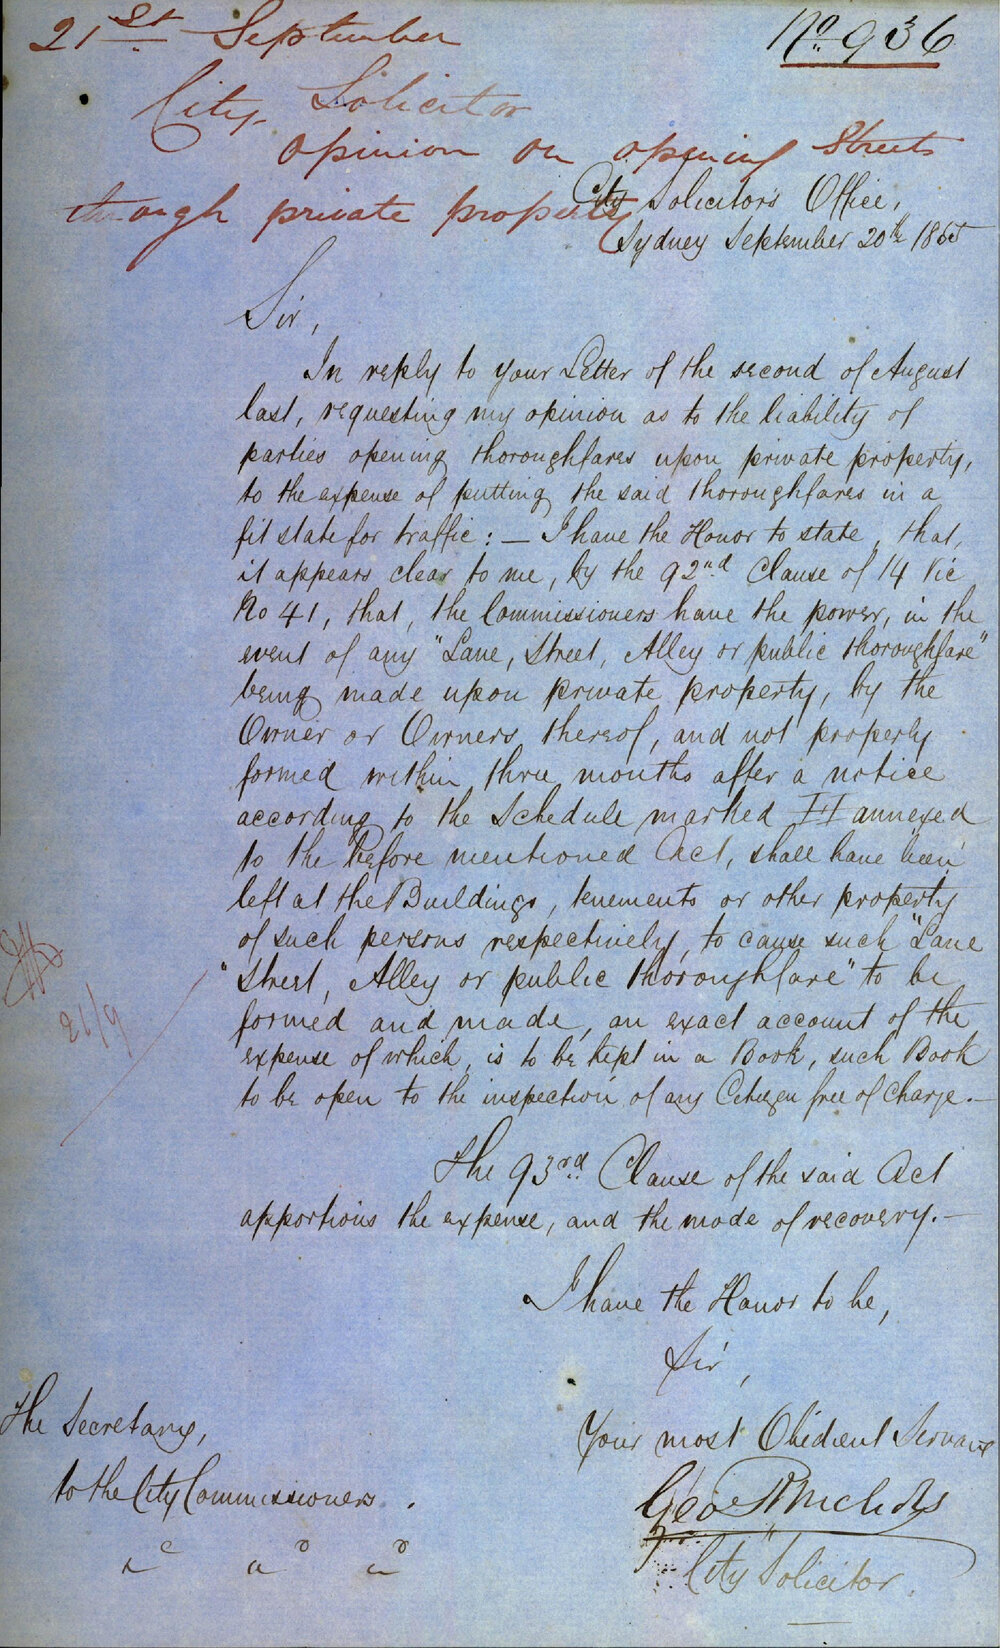 21st September
No. 936
City Solicitor
opinion on opening Streets
through private property
City Solicitor's Office,
Sydney September 20th 1855
Sir,
In reply to your Letter of the second of August
last, requesting my opinion as to the liability of
parties opening thoroughfares upon private property,
to the expense of putting the said thoroughfares in a
fit state for traffic: — I have the Honor to state, that,
it appears clear to me, by the 92nd Clause of 14 Vic
No 41, that, the Commissioners have the power, in the
event of any "Lane, Street, Alley or public thoroughfare"
being made upon private property, by the
Owner or Owners thereof, and not properly
formed within three months after a notice
according to the Schedule marked H annexed
to the before mentioned Act, shall have been
left at the Buildings, tenements or other property
of such persons respectively, to cause such "Lane
"Street, Alley or public thoroughfare" to be
formed and made, an exact account of the
expense of which, is to be kept in a Book, such Book
to be open to the inspection of any Citizen free of Charge. —
The 93rd Clause of the said Act
apportions the expense, and the mode of recovery. —
21/9
I have the Honor to be,
Sir,
Your most Obedient Servant
Geo
City Solicitor.
The Secretary,
to the City Commissioners.